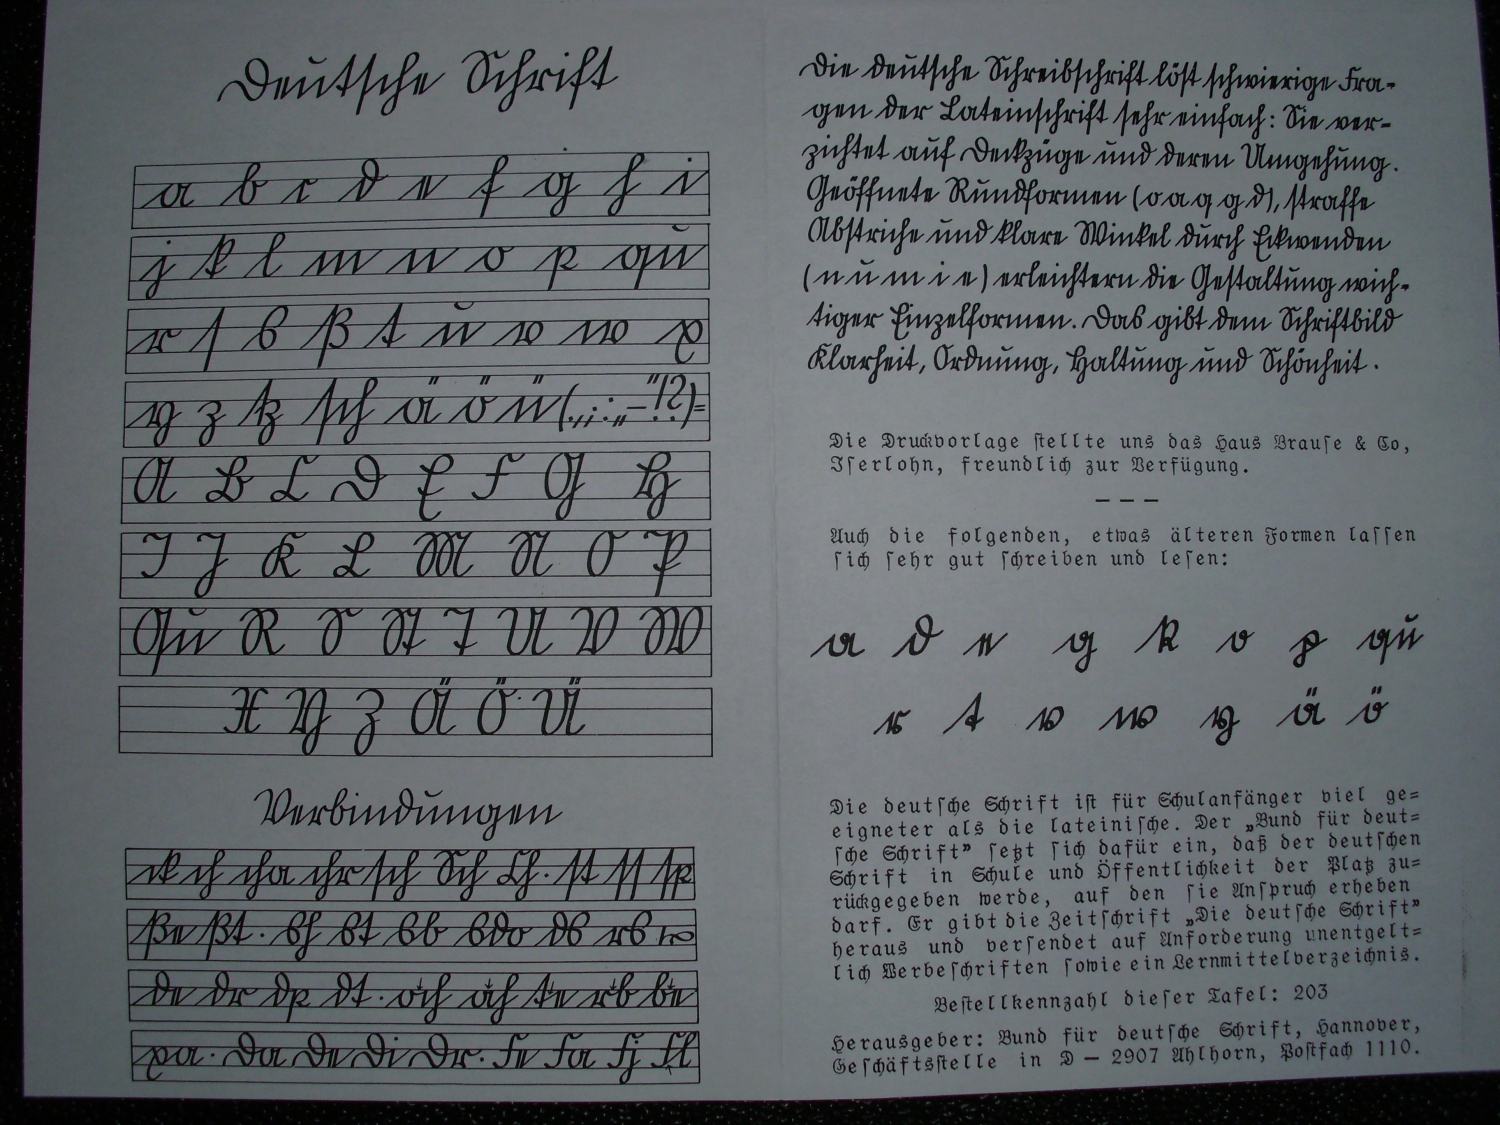 Deutsche Schrift
a b c d e f g h i
j k l m n o p qu
r ſ s ß t u v w x
y z tz ſch ä ö ü (.,;:„–"!?)=
A B C D E F G H
I J K L M N O P
Qu R S St T U V W
X Y Z Ä Ö Ü
Verbindungen
ck ch cha chr ſch Sch Ch. ſt ſſ ſp
ße ßt. sh st sb sdo ds rs ro
de dr dp dt. och äch te rb be
xa. Da De Di Dr. Fe Fa Fj Fl
Die deutſche Schreibſchrift löſt ſchwierige Fra-
gen der Lateinſchrift ſehr einfach: Sie ver-
zichtet auf Deckzüge und deren Umgehung.
Geöffnete Rundformen (o a q g d), ſtraffe
Abſtriche und klare Winkel durch Eckwenden
(n u m i e) erleichtern die Geſtaltung wich-
tiger Einzelformen. Das gibt dem Schriftbild
Klarheit, Ordnung, Haltung und Schönheit.
Die Druckvorlage ſtellte uns das Haus Brauſe & Co,
Iſerlohn, freundlich zur Verfügung.
– – –
Auch die folgenden, etwas älteren Formen laſſen
ſich ſehr gut ſchreiben und leſen:
a d e g k o p qu
r t v w y ä ö
Die deutſche Schrift iſt für Schulanfänger viel ge=
eigneter als die lateiniſche. Der „Bund für deut=
ſche Schrift" ſetzt ſich dafür ein, daß der deutſchen
Schrift in Schule und Öffentlichkeit der Platz zu=
rückgegeben werde, auf den ſie Anſpruch erheben
darf. Er gibt die Zeitſchrift „Die deutſche Schrift"
heraus und verſendet auf Anforderung unentgelt=
lich Werbeſchriften ſowie ein Lernmittelverzeichnis.
Beſtellkennzahl dieſer Tafel: 203
Herausgeber: Bund für deutſche Schrift, Hannover,
Geſchäftsſtelle in D – 2907 Ahlhorn, Poſtfach 1110.